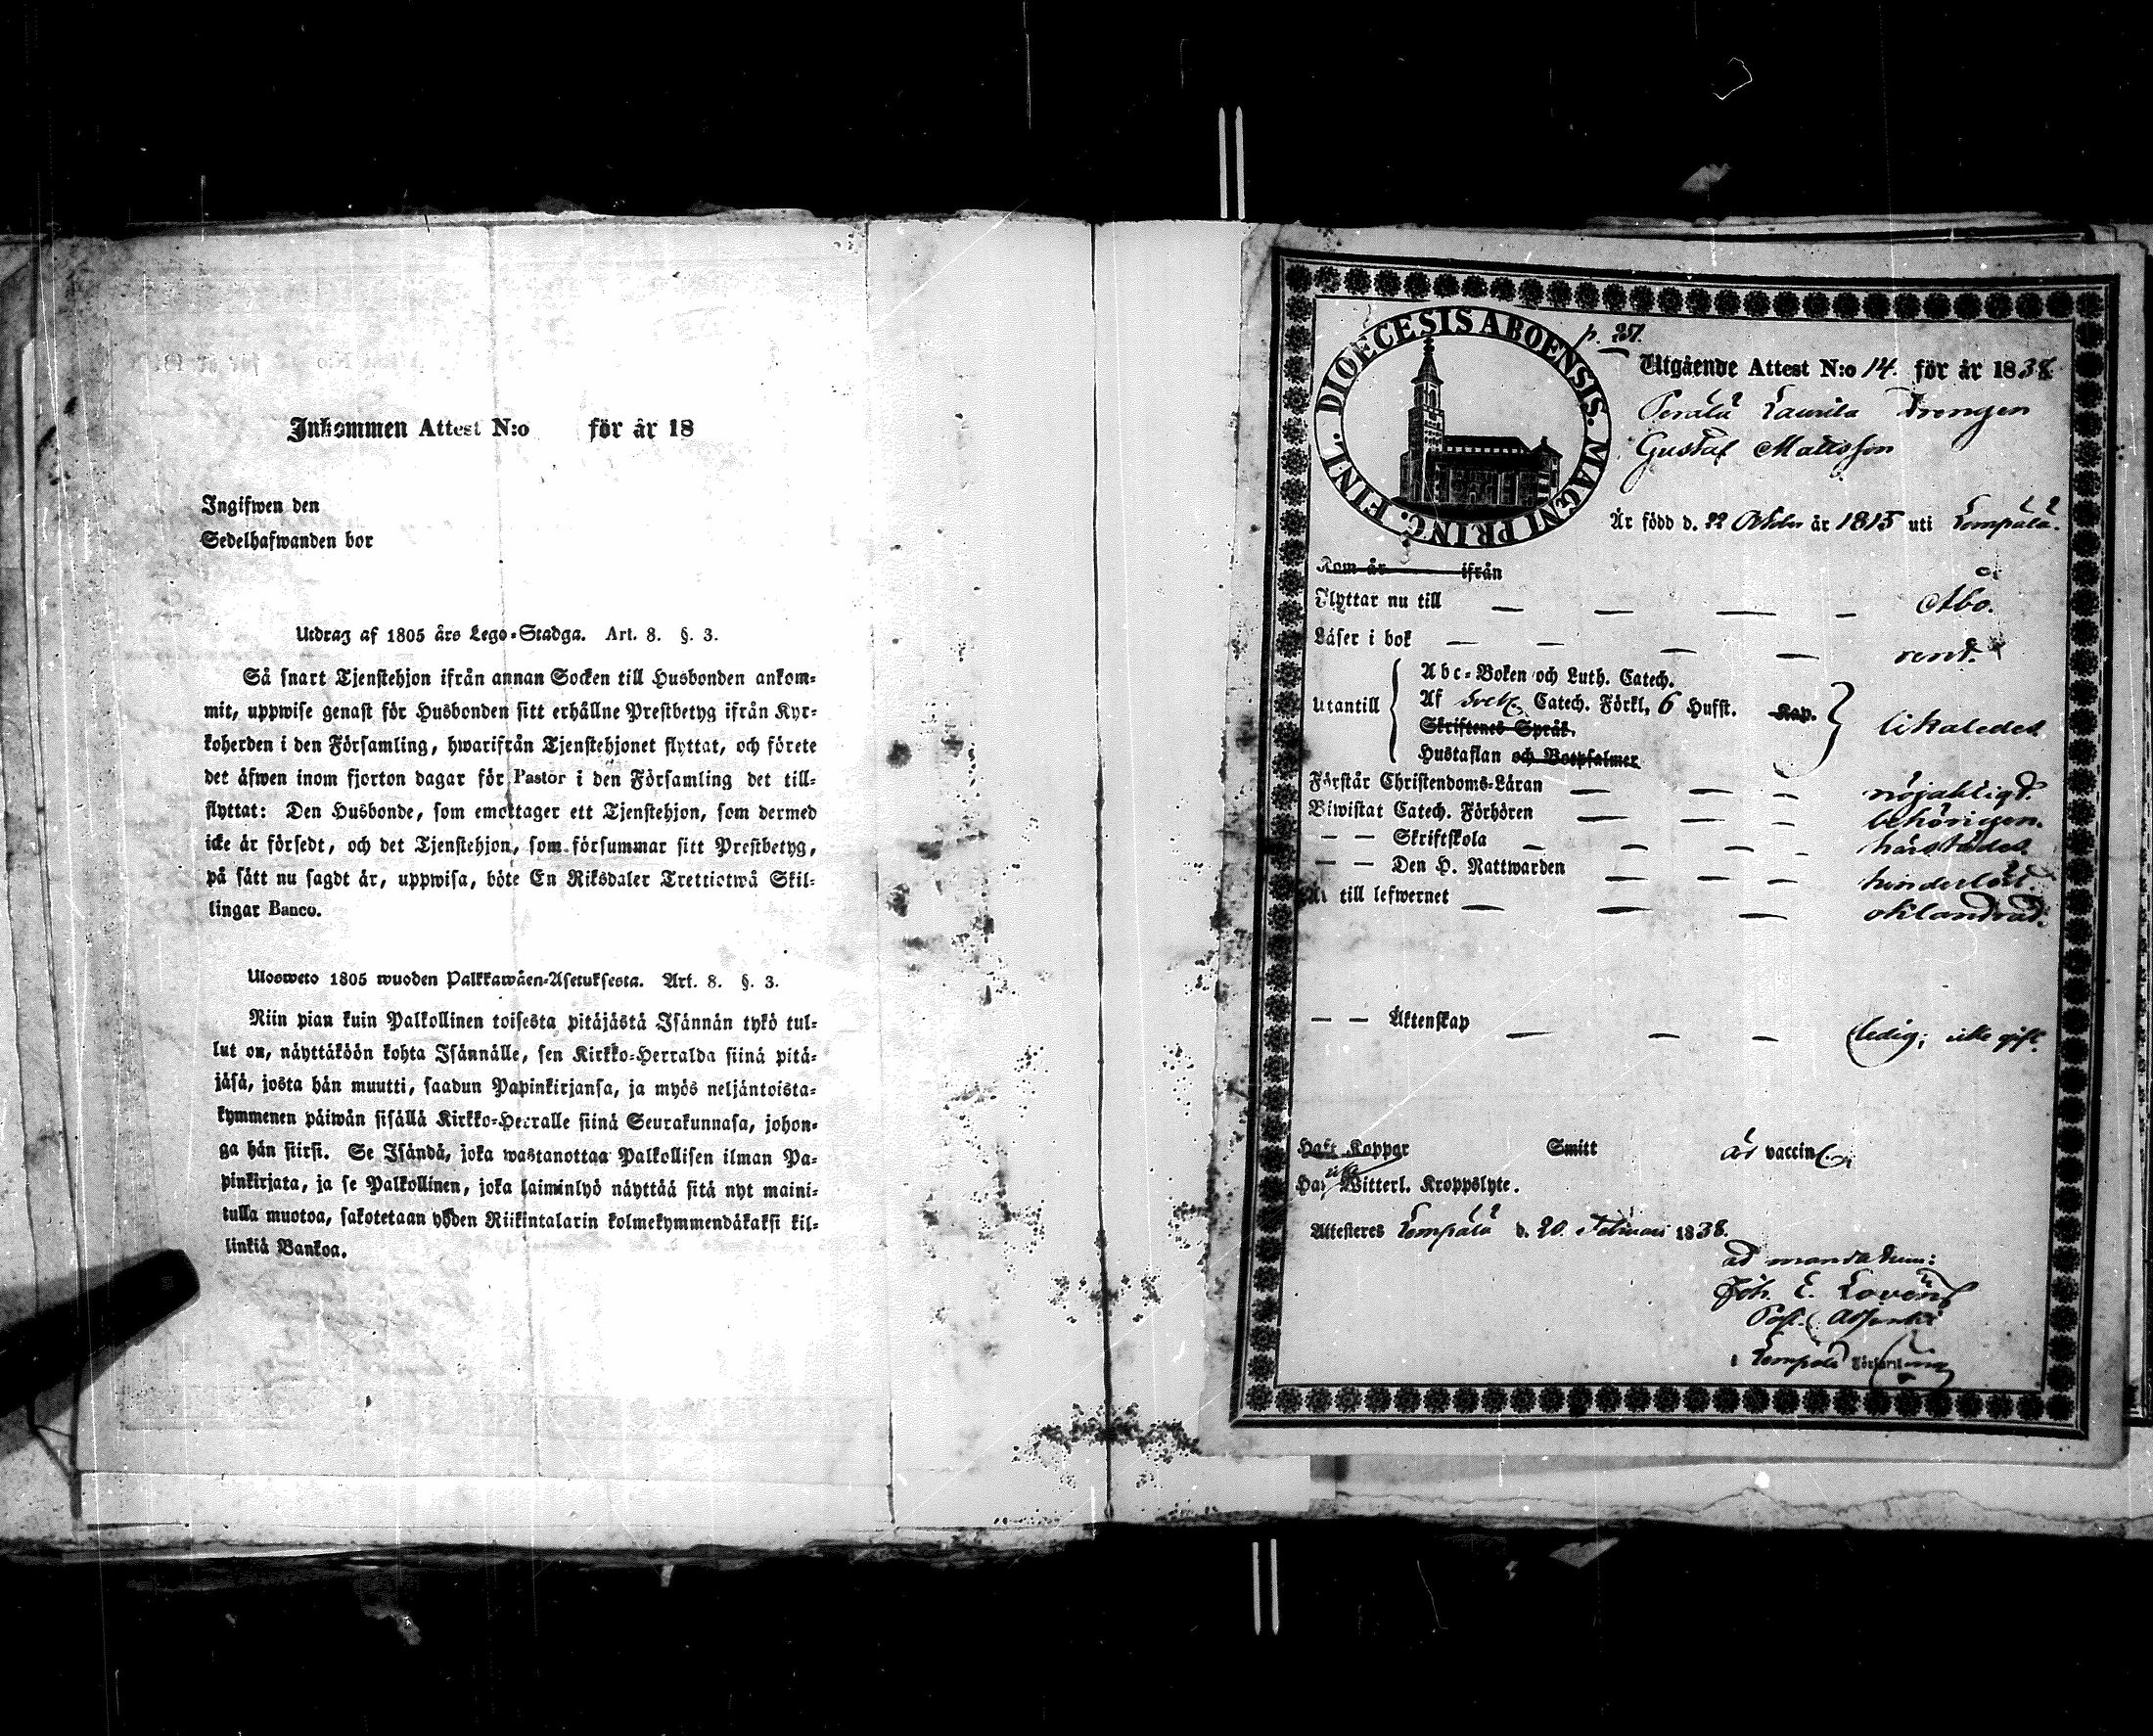 Inkommen Attest N:o för år 18
Ingifwen den
Sedelhafwanden bor
Utdrag af 1805 års Lego-Stadga. Art. 8. §. 3.
Så snart Tjenstehjon ifrån annan Socken till Husbonden ankom-
mit, uppwise genast för Husbonden sitt erhållne Prestbetyg ifrån Kyr-
koherden i den Församling, hwarifrån Tjenstehjonet flyttat, och förete
det äfwen inom fjorton dagar för Pastor i den Församling det till-
flyttat: Den Husbonde, som emottager ett Tjenstehjon, som dermed
icke är försedt, och det Tjenstehjon, som försummar sitt Prestbetyg,
på sätt nu sagdt är, uppwisa, böte En Riksdaler Trettiotwå Skil-
lingar Banco.
Ulosweto 1805 wuoden Palkkawäen-Asetuksesta. Art. 8. §. 3.
Niin pian kuin Palkollinen toisesta pitäjästä Isännän tykö tul-
lut on, näyttäköön kohta Isännälle, sen Kirkko-Herralda siinä pitä-
jäsä, josta hän muutti, saadun Papinkirjansa, ja myös neljäntoista-
kymmenen päiwän sisällä Kirkko-Herralle siinä Seurakunnasa, johon-
ga hän siirsi. Se Isändä, joka wastanottaa Palkollisen ilman Pa-
pinkirjata, ja se Palkollinen, joka laiminlyö näyttää sitä nyt maini-
tulla muotoa, sakotetaan yhden Riikintalarin kolmekymmendäkaksi kil-
linkiä Bankoa.
DIOECESIS ABOENSIS. MAGNI PRINC. FINL.
Utgående Attest N:o 14. för år 1838
Perälä Laurila Drengen
Gustaf Mattsson
Är född d. 22 October år 1815 uti Lempälä.
Kom år ifrån
Flyttar nu till Åbo.
Läser i bok rent.
Abc-Boken och Luth. Catech.
Utantill Af Sveb. Catech. Förkl, 6 Hufst. Kap. likaledes
Skriftenes Språk.
Hustaflan och Botpsalmer
Förstår Christendoms-Läran nöjaktigt.
Biwistat Catech. Förhören behörigen.
— — Skriftskola härstädes
— — Den H. Nattwarden hinderlöst.
Är till lefwernet oklandrad.
— — Äktenskap ledig; icke gift.
Haft Koppor Smitt är vaccin
Har icke Witterl. Kroppslyte.
Attesteres Lempälä d. 20 Februari 1838.
ad mandatum:
Joh. E. Lovén
i Lempälä Församling